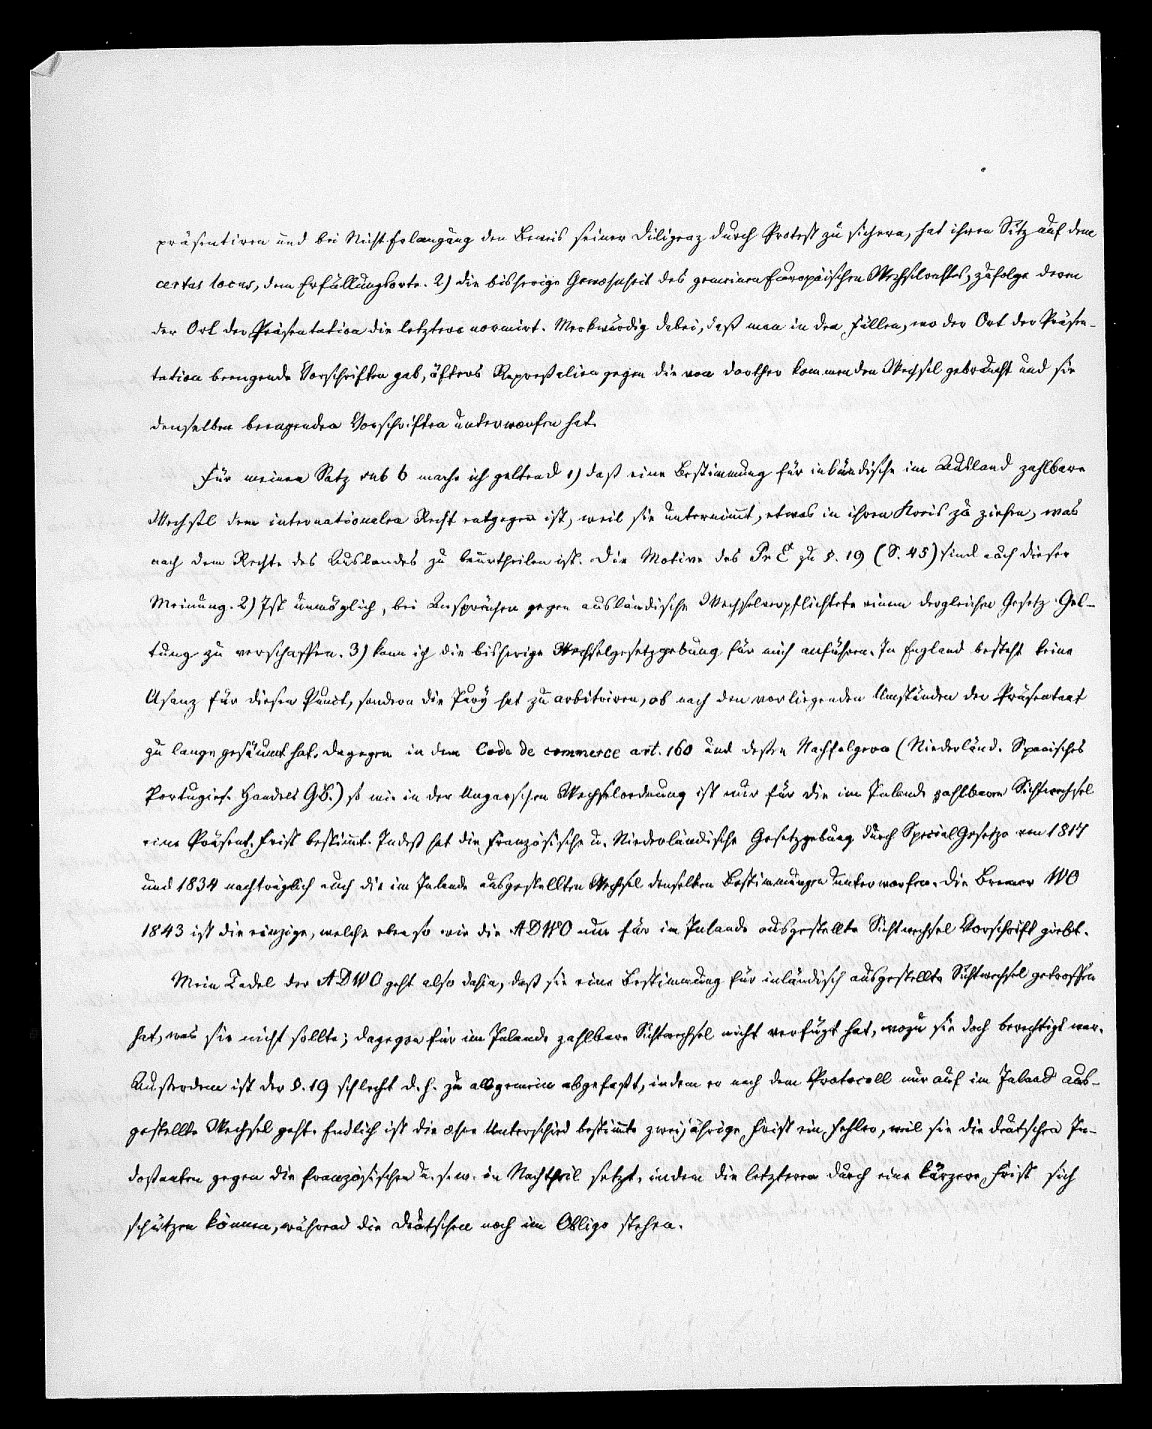 präsentiren und bei Nichterlangung den Beweis seiner Diligenz durch Protest zu sichern, hat ihren Sitz auf dem
certus locus, dem Erfüllungsorte. 2) die bisherige Gewohnheit des gemeinen Europäischen Wechselrechtes, zufolge deren
der Ort der Präsentation die letztere normirt. Merkwürdig dabei, daß man in den Fällen, wo der Ort der Präsen-
tation beengende Vorschriften gab, öfters Repressalien gegen die von dorther kommenden Wechsel gebraucht und sie
denselben beengenden Vorschriften unterworfen hat.
Für meinen Satz sub b mache ich geltend 1) daß eine Bestimmung für inländische im Ausland zahlbare
Wechsel dem internationalen Recht entgegen ist, weil sie unternimmt, etwas in ihren Kreis zu ziehen, was
nach dem Rechte des Auslandes zu beurtheilen ist. Die Motive des Pr E zu §. 19 (S. 45) sind auch dieser
Meinung. 2) Ist unmöglich, bei Ansprüchen gegen ausländische Wechselverpflichtete einem dergleichen Gesetz Gel-
tung zu verschaffen. 3) kann ich die bisherige Wechselgesetzgebung für mich anführen. In England besteht keine
Usanz für diesen Punct, sondern die Jury hat zu arbitriren, ob nach den vorliegenden Umständen der Präsentant
zu lange gesäumt hat. Dagegen in dem Code de commerce art. 160 und dessen Nachfolgern (Niederländ. Spanisches
Portugies. Handels GB.) so wie in der Ungarschen Wechselordnung ist nur für die im Inlande zahlbaren Sichtwechsel
eine Präsent. Frist bestimmt. Indeß hat die Französische u. Niederländische Gesetzgebung durch SpecialGesetze von 1817
und 1834 nachträglich auch die im Inlande ausgestellten Wechsel denselben Bestimmungen unterworfen. Die Bremer WO
1843 ist die einzige, welche ebenso wie die ADWO nur für im Inlande ausgestellte Sichtwechsel Vorschrift giebt.
Mein Tadel der ADWO geht also dahin, daß sie eine Bestimmung für inländisch ausgestellte Sichtwechsel getroffen
hat, was sie nicht sollte; dagegen für im Inlande zahlbare Sichtwechsel nicht verfügt hat, wozu sie doch berechtigt war.
Außerdem ist der §. 19 schlecht d. h. zu allgemein abgefaßt, indem er nach dem Protocoll nur auf im Inland aus-
gestellte Wechsel geht. Endlich ist die ohne Unterschied bestimmte zweijährige Frist ein Fehler, weil sie die deutschen In-
dossanten gegen die französischen u. s. w. in Nachtheil setzt, indem die letzteren durch eine kürzere Frist sich
schützen können, während die deutschen noch im Obligo stehen.